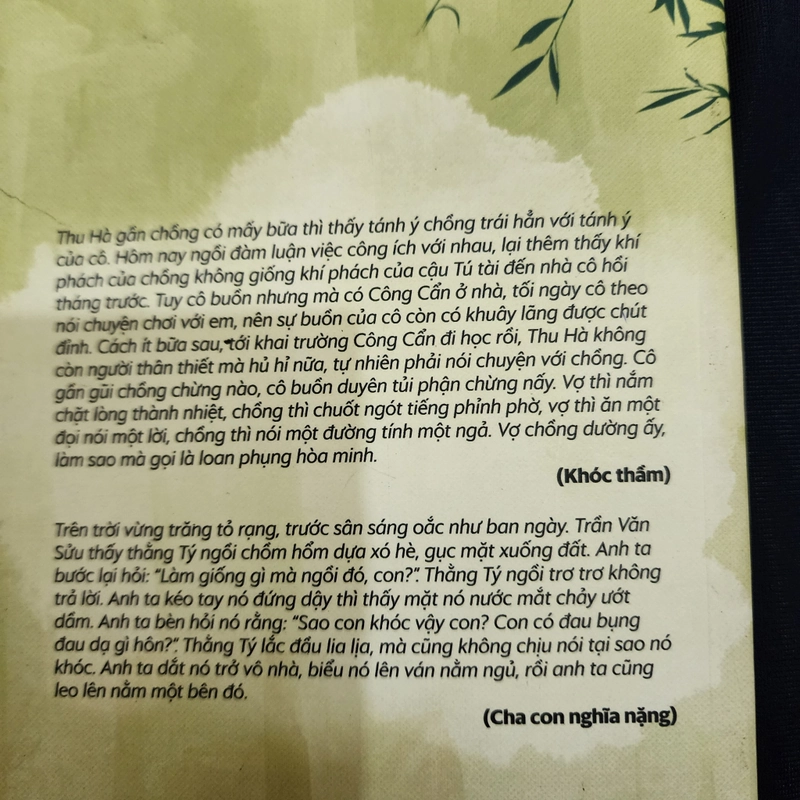 Thu Hà gần chồng có mấy bữa thì thấy tánh ý chồng trái hẳn với tánh ý
của cô. Hôm nay ngồi đàm luận việc công ích với nhau, lại thêm thấy khí
phách của chồng không giống khí phách của cậu Tú tài đến nhà cô hồi
tháng trước. Tuy cô buồn nhưng mà có Công Cẩn ở nhà, tối ngày cô theo
nói chuyện chơi với em, nên sự buồn của cô còn có khuây lãng được chút
đỉnh. Cách ít bữa sau, tới khai trường Công Cẩn đi học rồi, Thu Hà không
còn người thân thiết mà hủ hỉ nữa, tự nhiên phải nói chuyện với chồng. Cô
gần gũi chồng chừng nào, cô buồn duyên tủi phận chừng nấy. Vợ thì nắm
chặt lòng thành nhiệt, chồng thì chuốt ngót tiếng phỉnh phờ, vợ thì ăn một
đọi nói một lời, chồng thì nói một đường tính một ngả. Vợ chồng dường ấy,
làm sao mà gọi là loan phụng hòa minh.
(Khóc thầm)
Trên trời vừng trăng tỏ rạng, trước sân sáng oắc như ban ngày. Trần Văn
Sửu thấy thằng Tý ngồi chồm hổm dựa xó hè, gục mặt xuống đất. Anh ta
bước lại hỏi: “Làm giống gì mà ngồi đó, con?”. Thằng Tý ngồi trơ trơ không
trả lời. Anh ta kéo tay nó đứng dậy thì thấy mặt nó nước mắt chảy ướt
dầm. Anh ta bèn hỏi nó rằng: “Sao con khóc vậy con? Con có đau bụng
đau dạ gì hôn?”. Thằng Tý lắc đầu lia lịa, mà cũng không chịu nói tại sao nó
khóc. Anh ta dắt nó trở vô nhà, biểu nó lên ván nằm ngủ, rồi anh ta cũng
leo lên nằm một bên đó.
(Cha con nghĩa nặng)